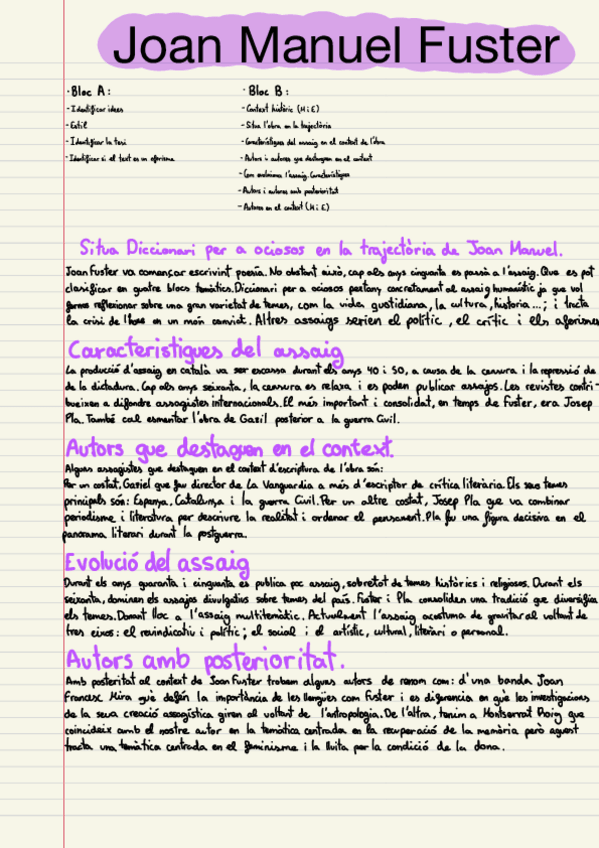 Joan Manuel Fuster
· Bloc A:
- Identificar idees
- Estil
- Identificar la tesi
- Identificar si el text es un aforisme
· Bloc B:
- Context històric (H i E)
- Situa l'obra en la trajectòria
- Característiques del assaig en el context de l'obra
- Autors i autores que destaquen en el context
- Com evoluciona l'assaig. Característiques
- Autors i autores amb posterioritat
- Autores en el context (H i E)
Situa Diccionari per a ociosos en la trajectòria de Joan Manuel.
Joan Fuster va començar escrivint poesia. No obstant això, cap als anys cinquanta es passà a l'assaig. Que es pot
clasificar en quatre blocs temàtics. Diccionari per a ociosos pertany concretament al assaig humanístic ja que vol
fer-nos reflexionar sobre una gran varietat de temes, com la vida quotidiana, la cultura, historia...; i tracta
la crisi de l'home en un món canviat. Altres assaigs serien el polític, el crític i els aforismes
Característiques del assaig
La producció d'assaig en català va ser escassa durant els anys 40 i 50, a causa de la censura i la repressió de
de la dictadura. Cap als anys seixanta, la censura es relaxa i es poden publicar assajos. Les revistes contri-
bueixen a difondre assagistes internacionals. El més important i consolidat, en temps de Fuster, era Josep
Pla. També cal esmentar l'obra de Gaziel posterior a la guerra Civil.
Autors que destaquen en el context.
Alguns assagistes que destaquen en el context d'escriptura de l'obra són:
Per un costat, Gaziel que fou director de La Vanguardia a més d'escriptor de crítica literària. Els seus temes
principals són: Espanya, Catalunya i la guerra Civil. Per un altre costat, Josep Pla que va combinar
periodisme i literatura per descriure la realitat i ordenar el pensament. Pla fu una figura decisiva en el
panorama literari durant la postguerra.
Evolució del assaig
Durant els anys quaranta i cinquanta es publica poc assaig, sobretot de temes històrics i religiosos. Durant els
seixanta, dominen els assajos divulgatius sobre temes del país. Fuster i Pla consoliden una tradició que diversifica
els temes. Donant lloc a l'assaig multitemàtic. Actualment l'assaig acostuma de gravitar al voltant de
tres eixos: el reivindicatiu i polític; el social i el artístic, cultural, literari o personal.
Autors amb posterioritat.
Amb posteritat al context de Joan Fuster trobem alguns autors de renom com: d'una banda Joan
Francesc Mira què defén la importància de les llengües com Fuster i es diferencia en què les investigacions
de la seva creació assagística giren al voltant de l'antropologia. De l'altra, tenim a Montserrat Roig que
coincideix amb el nostre autor en la temàtica centrada en la recuperació de la memària però aquest
tracta una temàtica centrada en el feminisme i la lluita per la condició de la dona.